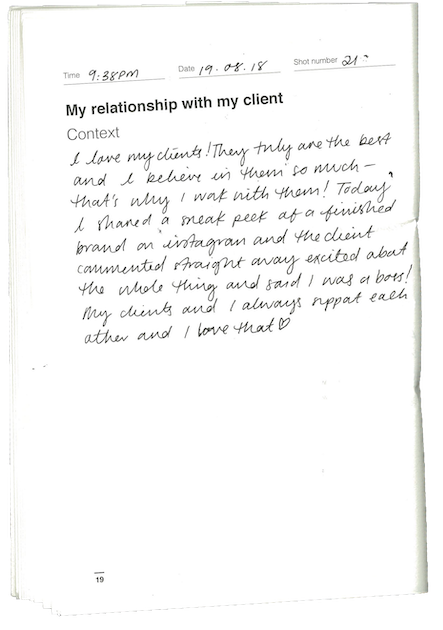 Time 9:38PM Date 19.08.18 Shot number 21
My relationship with my client
Context
I love my clients! They truly are the best
and I believe in them so much –
that's why I work with them! Today,
I shared a sneak peek of a finished
brand on instagram and the client
commented straight away excited about
the whole thing and said I was a boss!
My clients and I always support each
other and I love that ♡
19